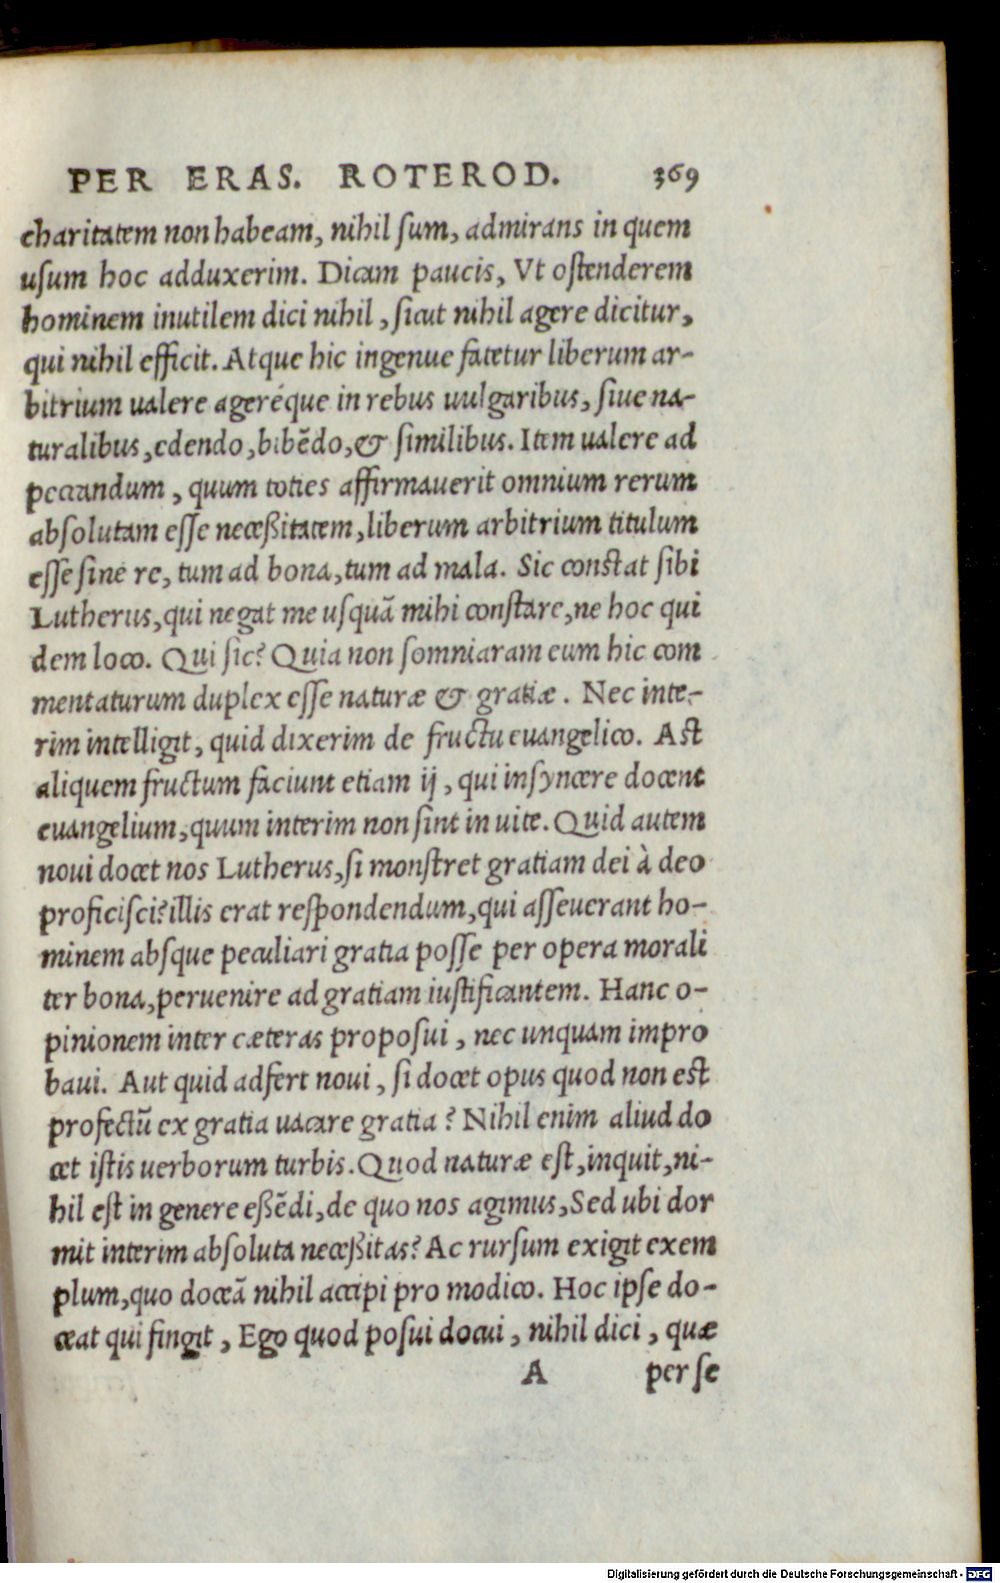 PER ERAS. ROTEROD. 369
charitatem non habeam, nihil ſum, admirans in quem
uſum hoc adduxerim. Dicam paucis, Vt oſtenderem
hominem inutilem dici nihil, ſicut nihil agere dicitur,
qui nihil efficit. Atque hic ingenue fatetur liberum ar-
bitrium ualere ageréque in rebus uulgaribus, ſiue na-
turalibus, edendo, bibẽdo, & ſimilibus. Item ualere ad
peccandum, quum toties affirmauerit omnium rerum
abſolutam eſſe neceßitatem, liberum arbitrium titulum
eſſe ſine re, tum ad bona, tum ad mala. Sic conſtat ſibi
Lutherus, qui negat me uſquã mihi conſtare, ne hoc qui
dem loco. Qui ſic? Quia non ſomniaram eum hic com
mentaturum duplex eſſe naturæ & gratiæ. Nec inte-
rim intelligit, quid dixerim de fructu euangelico. Aſt
aliquem fructum faciunt etiam ij, qui inſyncere docent
euangelium, quum interim non ſint in uite. Quid autem
noui docet nos Lutherus, ſi monſtret gratiam dei à deo
proficiſci? illis erat reſpondendum, qui aſſeuerant ho-
minem abſque peculiari gratia poſſe per opera morali
ter bona, peruenire ad gratiam iuſtificantem. Hanc o-
pinionem inter cæteras propoſui, nec unquam impro
baui. Aut quid adfert noui, ſi docet opus quod non eſt
profectũ ex gratia uacare gratia? Nihil enim aliud do
cet iſtis uerborum turbis. Quod naturæ eſt, inquit, ni-
hil eſt in genere eßẽdi, de quo nos agimus, Sed ubi dor
mit interim abſoluta neceßitas? Ac rurſum exigit exem
plum, quo doceã nihil accipi pro modico. Hoc ipſe do-
ceat qui fingit, Ego quod poſui docui, nihil dici, quæ
A per ſe
Digitalisierung gefördert durch die Deutsche Forschungsgemeinschaft - DFG